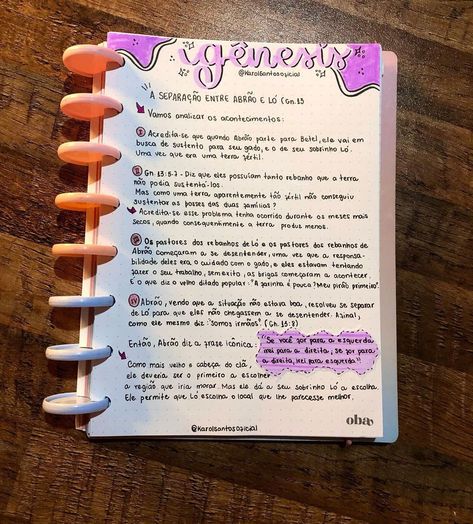 gênesis
@Karolsantosoficial
A SEPARAÇÃO ENTRE ABRÃO E LÓ (Gn. 13
Vamos analizar os acontecimentos:
I Acredita-se que quando Abrão parte para Betel, ele vai em
busca de sustento para seu gado, e o de seu sobrinho Ló.
Uma vez que era uma terra fértil.
II Gn. 13:5-7 - Diz que eles possuíam tanto rebanho que a terra
não podia sustentá-los.
Mas como uma terra aparentemente tão fértil não conseguiu
sustentar as posses das duas famílias?
Acredita-se esse problema tenha ocorrido durante os meses mais
secos, quando consequentimente a terra produs menos.
III Os pastores dos rebanhos de Ló e os pastores dos rebanhos de
Abrão começaram a se desentender, uma vez que a responsa-
bilidade deles era o cuidado com o gado, e eles estavam tentando
fazer o seu trabalho, sem exito, as brigas começaram a acontecer.
É o que diz o velho ditado popular: "A farinha é pouca? Meu pirão primeiro".
IV Abrão, vendo que a situação não estava boa, resolveu se separar
de Ló para que eles não chegassem a se desentender. Afinal,
como ele mesmo diz: "somos irmãos". (Gn. 13:8)
Então, Abrão diz a frase icônica: "Se você for para a esquerda
irei para a direita; se for para
a direita, irei para esquerda"!
Como mais velho e cabeça do clã,
ele deveria ser o primeiro a escolher
a região que iria morar. Mas ele dá a seu sobrinho Ló a escolha.
Ele permite que Ló escolha o local que lhe parecesse melhor.
@Karolsantosoficial
oba